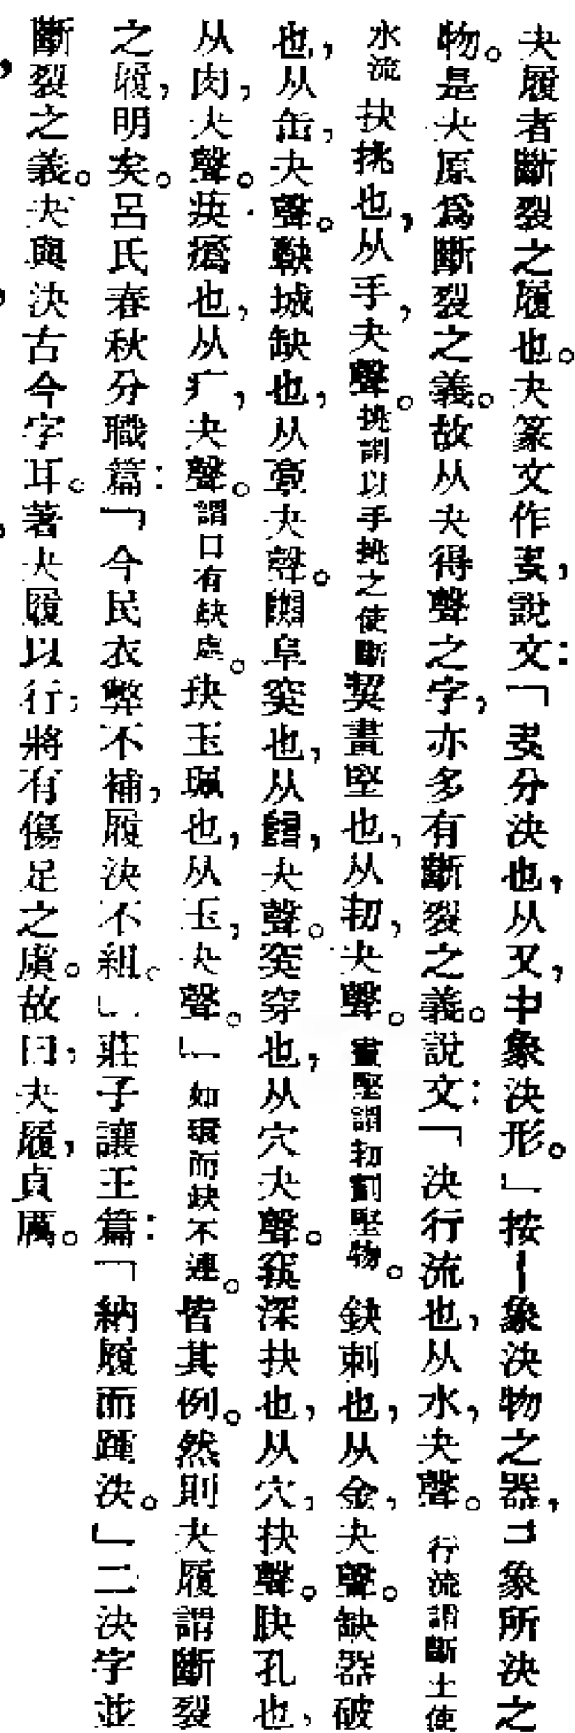 夬履者斷裂之履也。夬篆文作叏，說文：「叏分決也，从又，㇕象決形。」按丨象決物之器，コ象所決之
物。是夬原爲斷裂之義。故从夬得聲之字，亦多有斷裂之義。說文：「決行流也，从水，夬聲。行流謂斷土使
水流抉挑也，从手，夬聲。挑謂以手挑之使斷契畫堅也，从㓞，夬聲。畫堅謂㓞割堅物。鈌刺也，从金，夬聲。缺器破
也，从缶，夬聲。城缺也，从夬聲。阜突也，从夬聲。突穿也，从穴夬聲。深抉也，从穴，抉聲。肤孔也，
从肉，夬聲。疾瘑也，从疒，夬聲。謂口有缺處。玦玉珮也，从玉，夬聲。」如環而缺不連。皆其例。然則夬履謂斷裂
之履，明矣。呂氏春秋分職篇：「今民衣弊不補，履決不組。」莊子讓王篇：「納履而踵決。」二決字並
斷裂之義。夬與決古今字耳。著夬履以行，將有傷足之虞。故曰，夬履，貞厲。